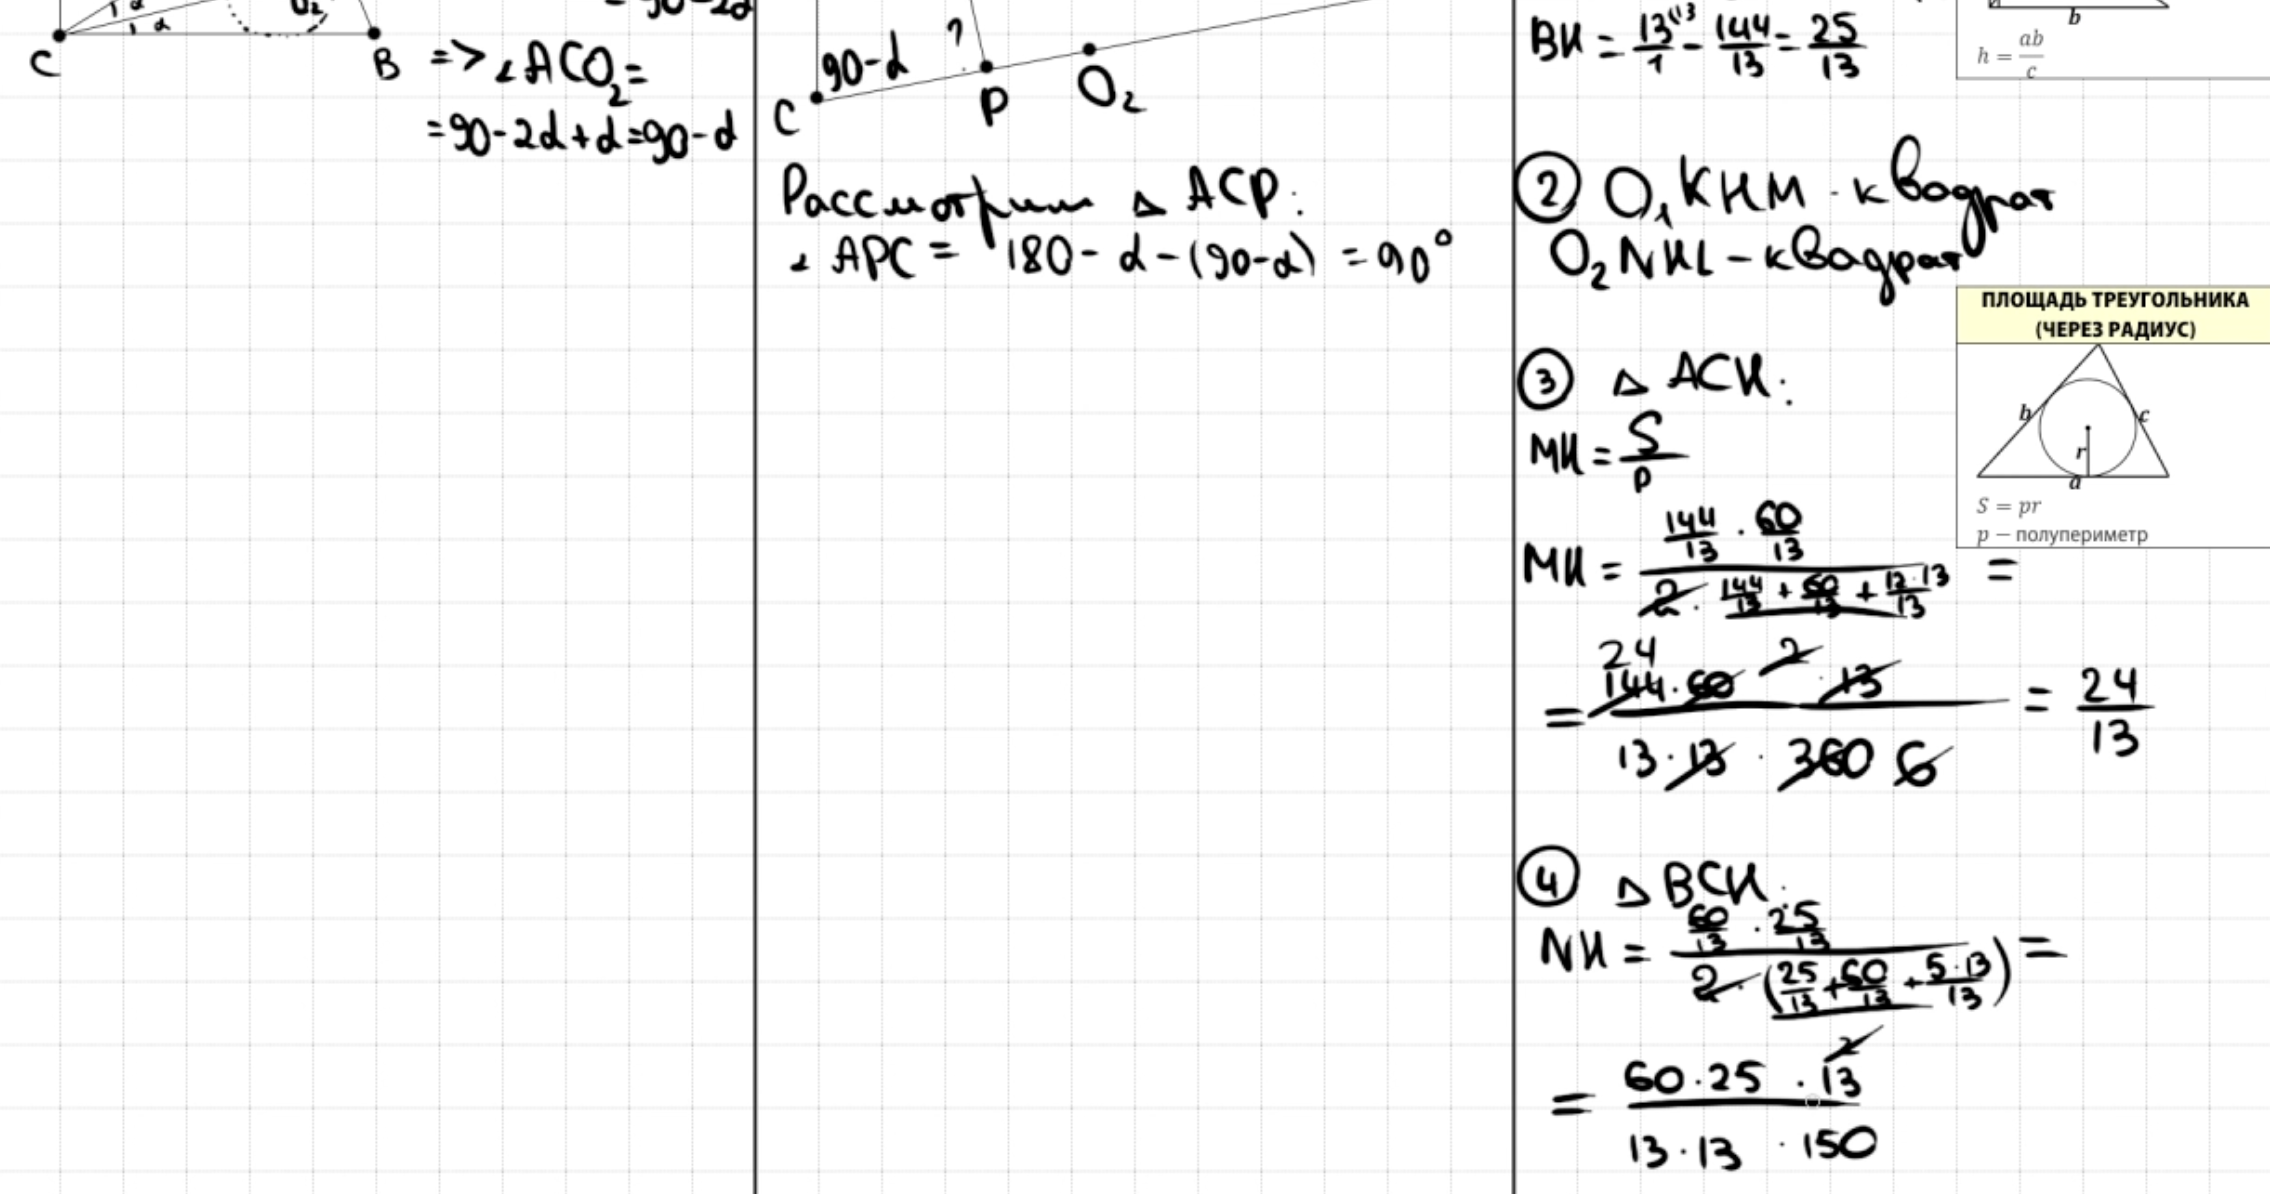 = 90-2α
α
α
O₂
C
B
=> ∠ACO₂=
=90-2α+α=90-α
?
90-α
C
P
O₂
Рассмотрим △ ACP:
∠ APC = 180- α-(90-α) =90°
BH = 13⁽¹³/1 - 144/13 = 25/13
b
h = ab/c
② O₁KHM - квадрат
O₂NHL - квадрат
ПЛОЩАДЬ ТРЕУГОЛЬНИКА
(ЧЕРЕЗ РАДИУС)
b
c
r
a
S = pr
p — полупериметр
③ △ ACH:
MH = S/p
MH = (144/13 · 60/13)/(2 · 144/13 + 60/13 + 12·13/13) =
= (24 144·60 2 · 13)/(13·13 · 360 6) = 24/13
④ △ BCH:
NH = (60/13 · 25/13)/(2·(25/13+60/13+5·13/13)) =
= (60·25 · 13 2)/(13·13 · 150)